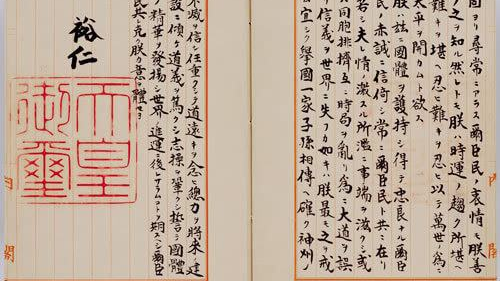 ヨリ尋常ニアラス爾臣民ノ衷情モ朕善
ク之ヲ知ル然レトモ朕ハ時運ノ趨ク所堪ヘ
難キヲ堪ヘ忍ヒ難キヲ忍ヒ以テ萬世ノ為ニ
太平ヲ開カムト欲ス
朕ハ茲ニ國體ヲ護持シ得テ忠良ナル爾臣
民ノ赤誠ニ信倚シ常ニ爾臣民ト共ニ在リ
若シ夫レ情ノ激スル所濫ニ事端ヲ滋クシ或
ハ同胞排擠互ニ時局ヲ亂リ為ニ大道ヲ誤
リ信義ヲ世界ニ失フカ如キハ朕最モ之ヲ戒
ム宜シク擧國一家子孫相傳ヘ確ク神州ノ
不滅ヲ信シ任重クシテ道遠キヲ念ヒ總力ヲ將來ノ建
設ニ傾ケ道義ヲ篤クシ志操ヲ鞏クシ誓テ國體
ノ精華ヲ發揚シ世界ノ進運ニ後レサラムコトヲ期スヘシ爾臣
民其レ克ク朕カ意ヲ體セヨ
裕仁
天皇
御璽
内閣
閣